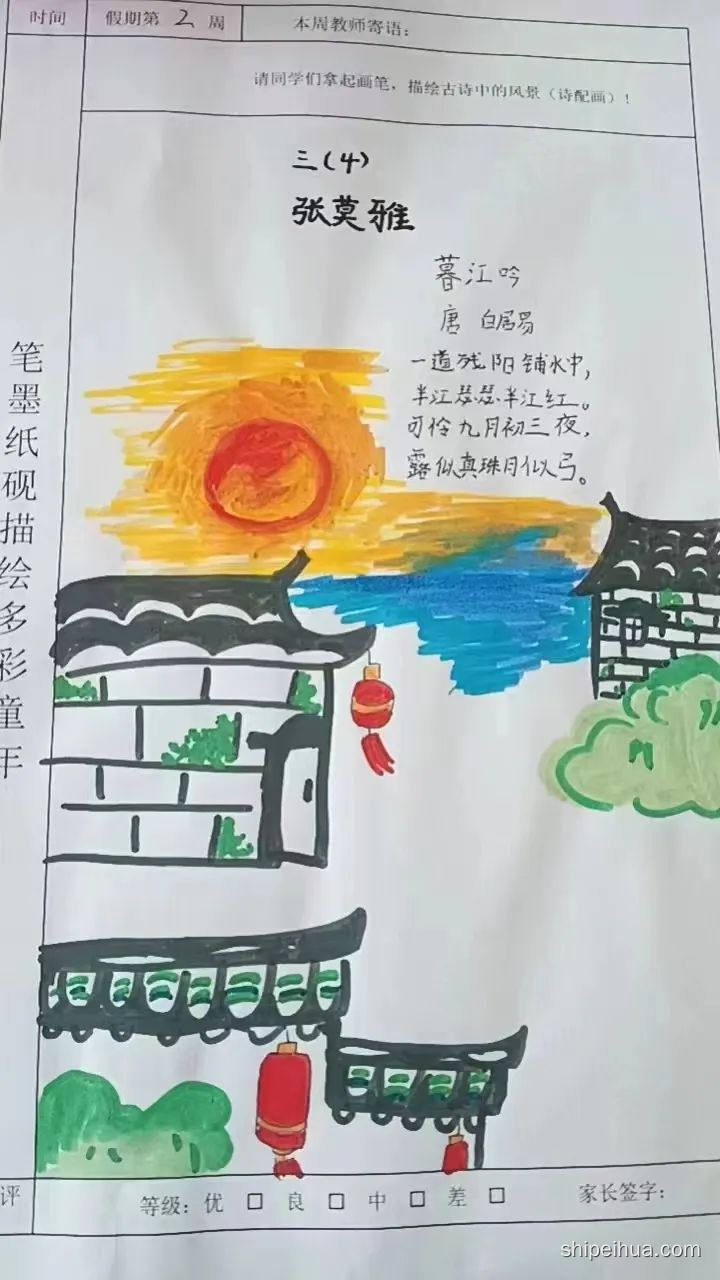 时间
假期第 2 周
本周教师寄语：
请同学们拿起画笔，描绘古诗中的风景（诗配画）！
三（4）
张莫雅
暮江吟
唐 白居易
一道残阳铺水中，
半江瑟瑟半江红。
可怜九月初三夜，
露似真珠月似弓。
笔墨纸砚描绘多彩童年
评
等级：优 □ 良 □ 中 □ 差 □
家长签字：
shipeihua.com